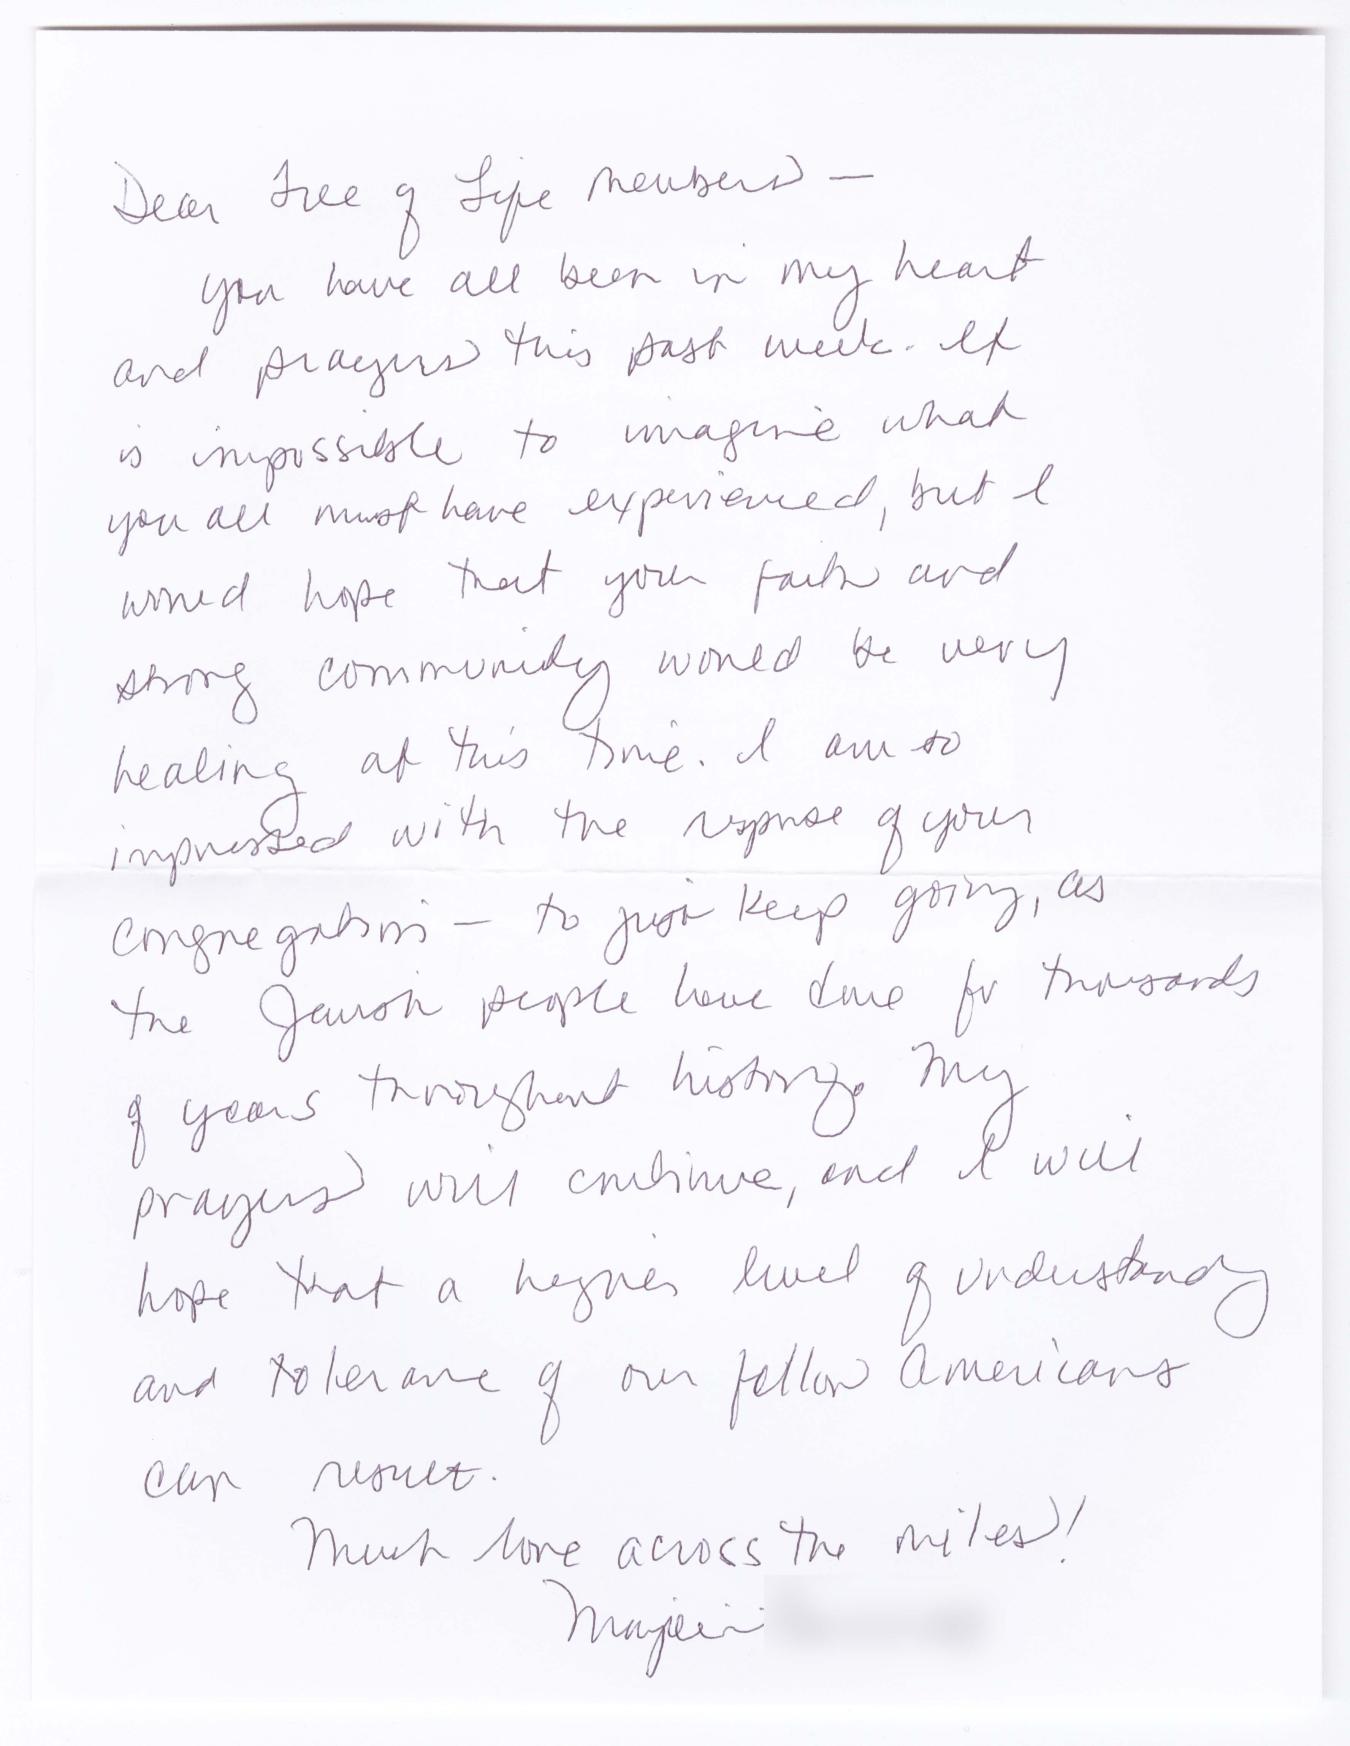 Dear Tree of Life members —
You have all been in my heart
and prayers this past week. It
is impossible to imagine what
you all must have experienced, but I
would hope that your faith and
strong community would be very
healing at this time. I am so
impressed with the response of your
congregation — to just keep going, as
the Jewish people have done for thousands
of years throughout history. My
prayers will continue, and I will
hope that a higher level of understanding
and tolerance of our fellow Americans
can result.
Much love across the miles!